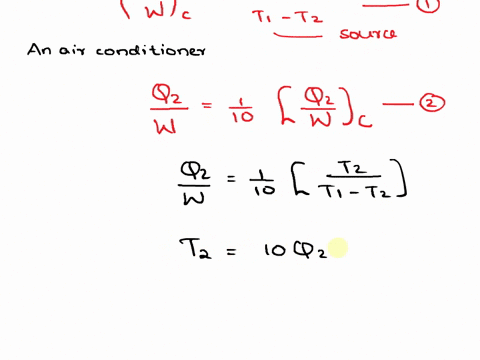 (W)c T1 - T2 — ①
source
An air conditioner
Q2/W = 1/10 [Q2/W]c — ②
Q2/W = 1/10 [T2/T1 - T2]
T2 = 10 Q2